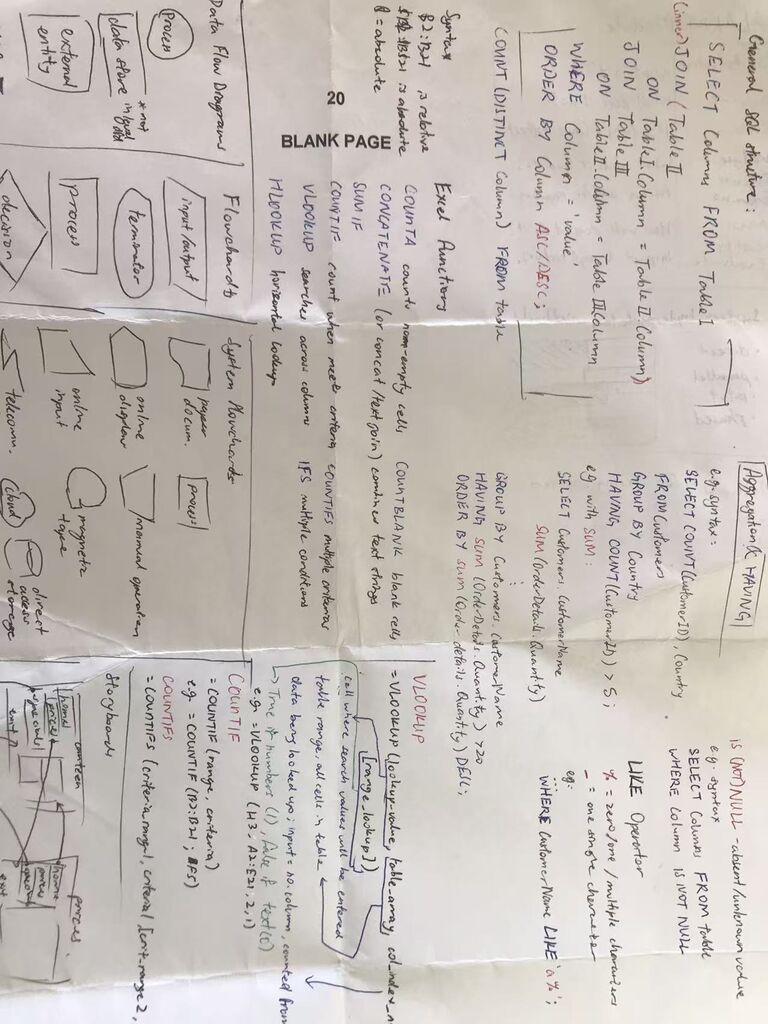 General SQL structure:
SELECT Columns FROM Table I
(inner) JOIN (Table II
ON Table I.Column = Table II.Column)
JOIN Table III
ON Table II.Column = Table III.Column
WHERE Column = 'value'
ORDER BY Column ASC/DESC;
COUNT (DISTINCT Column) FROM table
Aggregation & HAVING
e.g. syntax:
SELECT COUNT(CustomerID), Country
FROM Customers
GROUP BY Country
HAVING COUNT(CustomerID) > 5;
eg with SUM:
SELECT Customers.CustomerName
SUM(OrderDetails.Quantity)
GROUP BY Customers.CustomerName
HAVING SUM (OrderDetails.Quantity) > 20
ORDER BY SUM (Order-details.Quantity) DESC;
IS (NOT) NULL - absent/unknown value
e.g. syntax
SELECT Columns FROM table
WHERE Column IS NOT NULL
LIKE Operator
% = zero/one/multiple characters
_ = one single character
eg.
WHERE CustomerName LIKE 'a%';
Syntax
B2:B21 is relative
is absolute
= absolute
20
BLANK PAGE
Excel Functions
COUNTA counts non-empty cells COUNTBLANK blank cells
CONCATENATE (or concat/textjoin) combines text strings
SUMIF
COUNTIF count when meets criteria COUNTIFS multiple criterias
VLOOKUP searches across columns IFS multiple conditions
HLOOKUP horizontal lookup
VLOOKUP
=VLOOKUP (lookup-value, table-array, col_index_n
[range_lookup])
cell where search values will be entered
table range, all cells in table
data being looked up; input = no. column, counted from
↳ True if numbers (1), false if text (0)
e.g. =VLOOKUP (H3, A2:E21, 2, 1)
COUNTIF
=COUNTIF (range, criteria)
eg. = COUNTIF (B2:B21;
COUNTIFS
=COUNTIFS (criteria_range1, criteria1, [crit-range2,
Data Flow Diagrams
Process
data store
* not
in
external
entity
Flowcharts
input/output
terminator
process
decision
System Flowcharts
paper
docum.
process
online
display
manual operation
online
input
magnetic
tape
telecomm.
cloud
direct
access
storage
Storyboards
canteen
home
prices
specials
exit
home
prices
specials
exit
prices